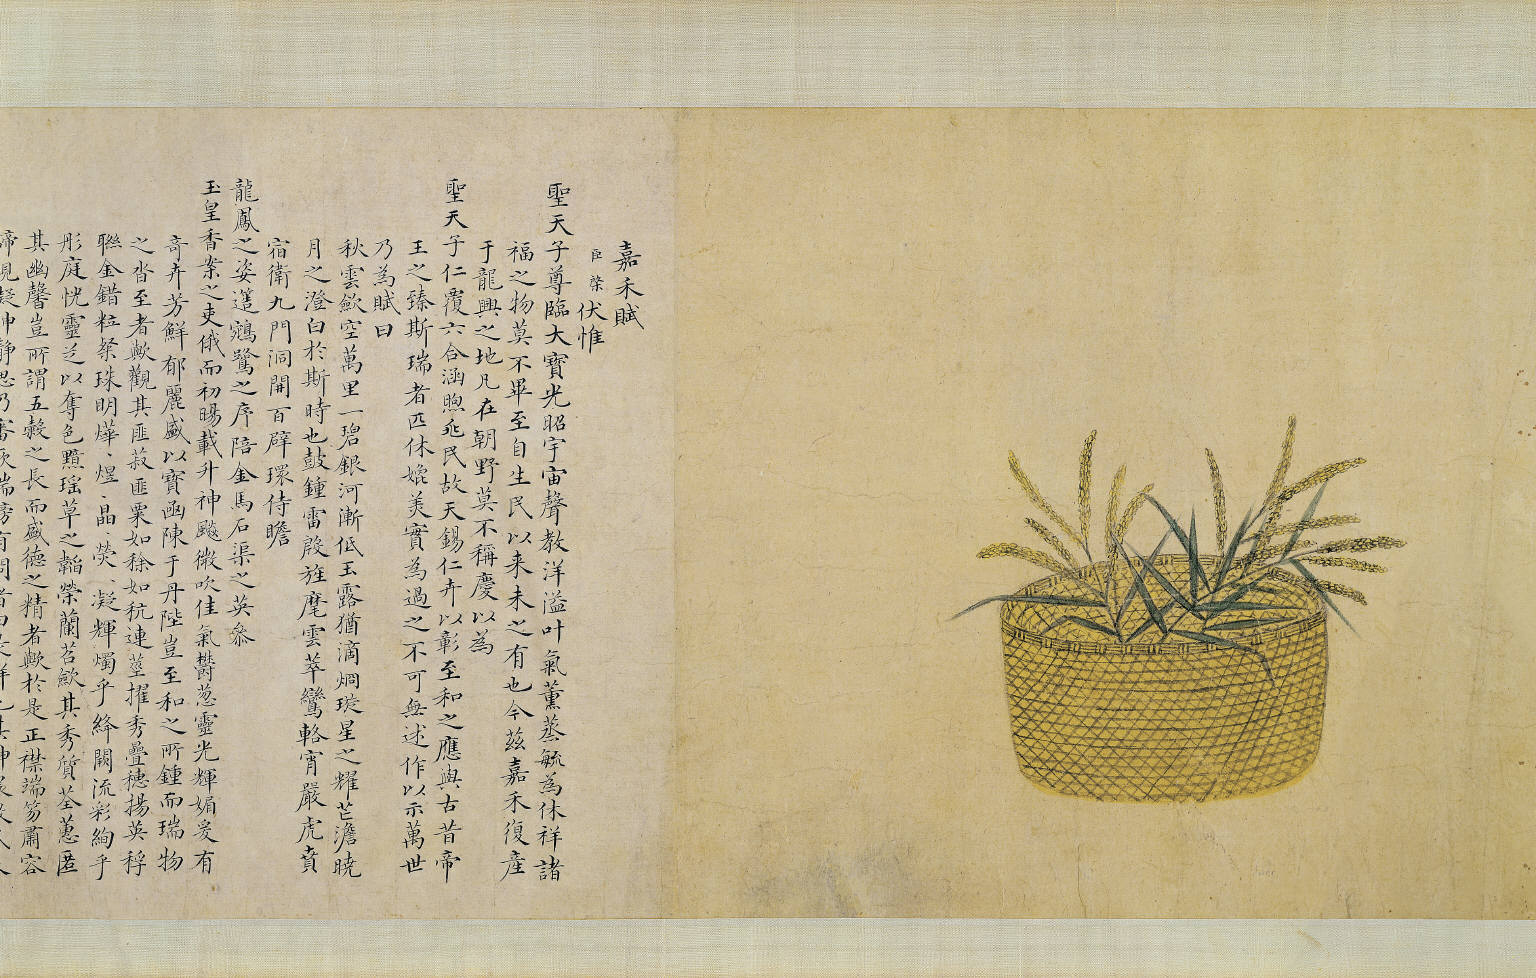 嘉禾賦
臣棨伏惟
聖天子尊臨大寶光昭宇宙聲教洋溢叶氣薰蒸毓為休祥諸
福之物莫不畢至自生民以来未之有也今茲嘉禾復產
于龍興之地凡在朝野莫不稱慶以為
聖天子仁覆六合涵煦兆民故天錫仁卉以彰至和之應與古昔帝
王之臻斯瑞者匹休媲美實為過之不可無述作以示萬世
乃為賦曰
秋雲歛空萬里一碧銀河漸低玉露猶滴烱璇星之耀芒澹曉
月之澄白於斯時也鼓鍾雷殷旌麾雲萃鸞輅宵嚴虎賁
宿衛九門洞開百辟環侍瞻
龍鳳之姿簉鵷鷺之序陪金馬石渠之英叅
玉皇香案之吏俄而初暘載升神飈微吹佳氣欝葱靈光輝媚爰有
竒卉芳鮮郁麗盛以寶函陳于丹陛豈至和之所鍾而瑞物
之沓至者歟觀其匪菽匪粟如稌如秔連莖擢秀疊穗揚英稃
聯金錯粒粲珠明燁、煜、晶、熒、凝輝燭乎絳闕流彩絢乎
彤庭恍靈芝以奪色黯瑶草之韜榮蘭苕歛其秀質荃蕙匿
其幽馨豈所謂五穀之長而盛德之精者歟於是正襟端笏肅容